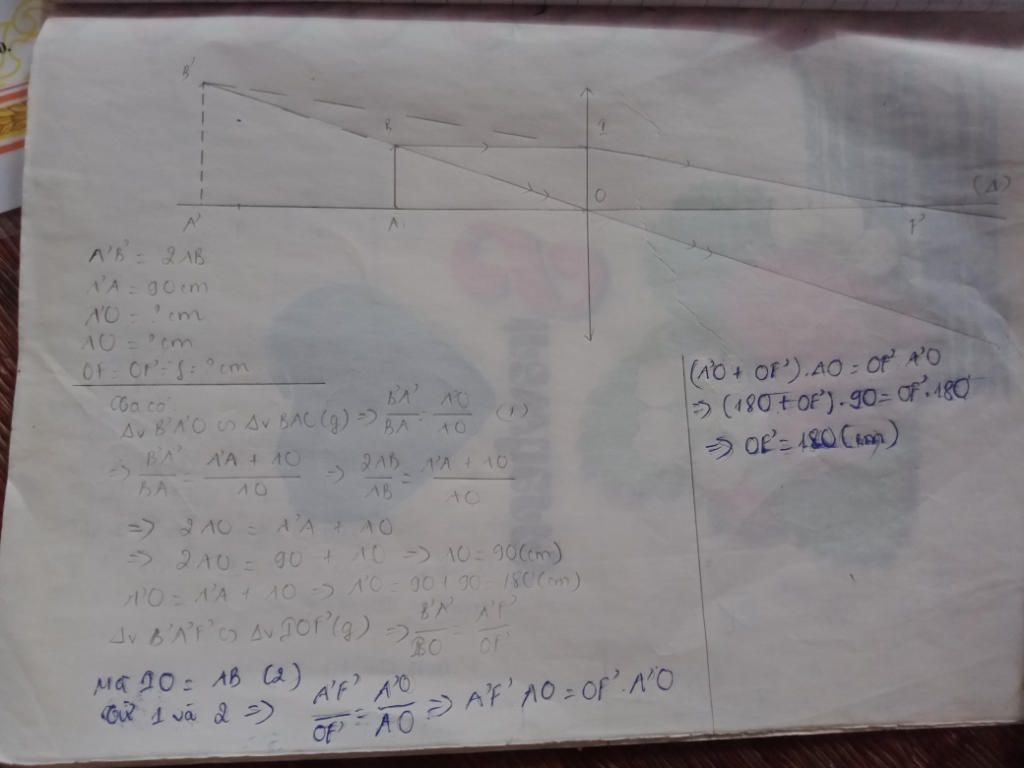 B'
B
I
O
(Δ)
A'
A
F'
A'B' = 2AB
A'A = 90cm
A'O = ? cm
AO = ? cm
OF = OF' = f = ? cm
Ta có:
Δv B'A'O ∽ Δv BAO (g) => B'A'/BA = A'O/AO (1)
=> B'A'/BA = A'A + AO/AO => 2AB/AB = A'A + AO/AO
=> 2AO = A'A + AO
=> 2AO = 90 + AO => AO = 90(cm)
A'O = A'A + AO => A'O = 90 + 90 = 180(cm)
Δv B'A'F' ∽ Δv IOF' (g) => B'A'/IO = A'F'/OF'
Mà IO = AB (2)
Từ 1 và 2 => A'F'/OF' = A'O/AO => A'F' AO = OF'. A'O
(A'O + OF').AO = OF' A'O
=> (180 + OF').90 = OF'.180
=> OF' = 180(cm)